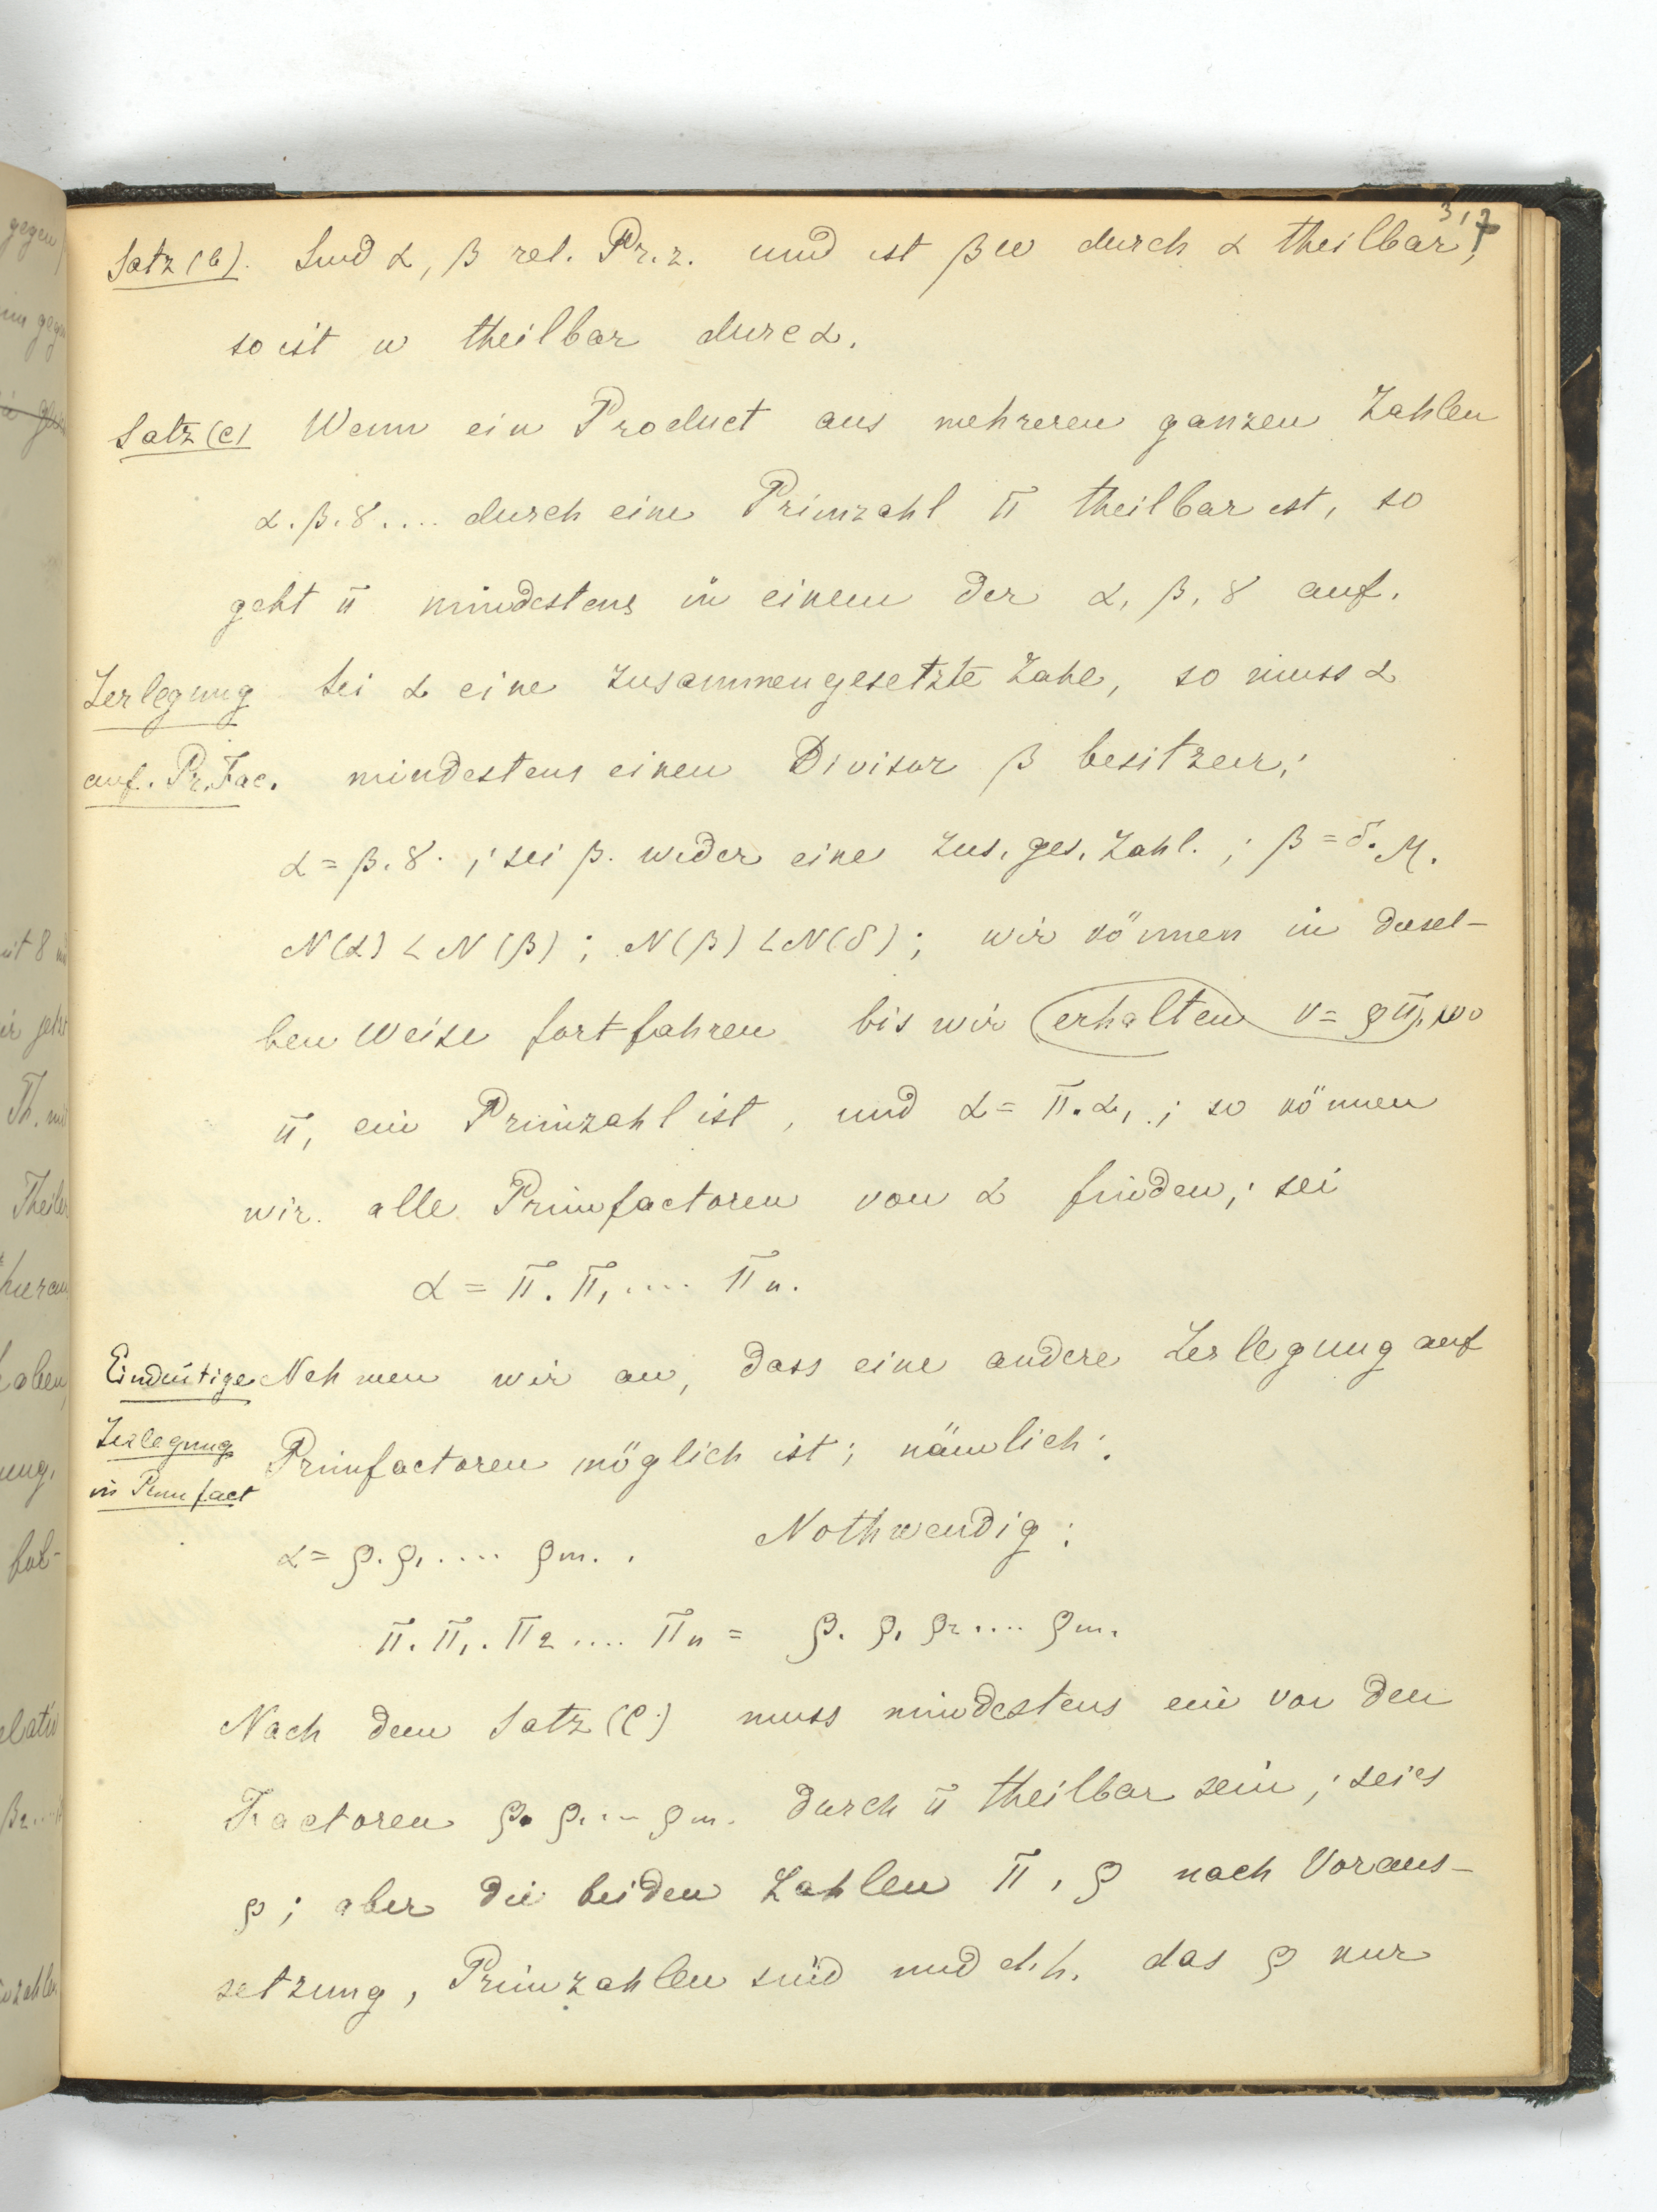 317
Satz (b). Sind α, β rel. Pr. z. und ist βω durch α theilbar,
so ist ω theilbar durc α.
Satz (c) Wenn ein Product aus mehreren ganzen Zahlen
α. β. γ.... durch eine Primzahl π theilbar ist, so
geht π mindestens in einem der α, β, γ auf.
Zerlegung Sei α eine zusammengesetzte Zahl, so muss α
auf. Pr. Fac. mindestens einen Divisor β besitzen;
α = β. γ. ; sei β. wieder eine zus. ges. Zahl. ; β = δ. η.
N(α) < N(β) ; N(β) < N(δ) ; wir können in dersel-
ben Weise fortfahren bis wir erhalten ν = ρπ, wo
π, ein Primzahl ist, und α = π. α, ; so können
wir alle Primfactoren von α finden; sei
α = π. π, .... πn.
Eindeutige Nehmen wir an, dass eine andere Zerlegung auf
Zerlegung Primfactoren möglich ist; nämlich:
in Primfact
α = ρ. ρ, .... ρm. . Nothwendig:
π. π,. π2 .... πn = ρ. ρ, ρ2 .... ρm.
Nach dem Satz (c) muss mindestens ein von den
Factoren ρ. ρ, ... ρm. durch π theilbar sein; sei es
ρ; aber die beiden Zahlen π, ρ nach Voraus-
setzung, Primzahlen sind und d. h. das ρ nur